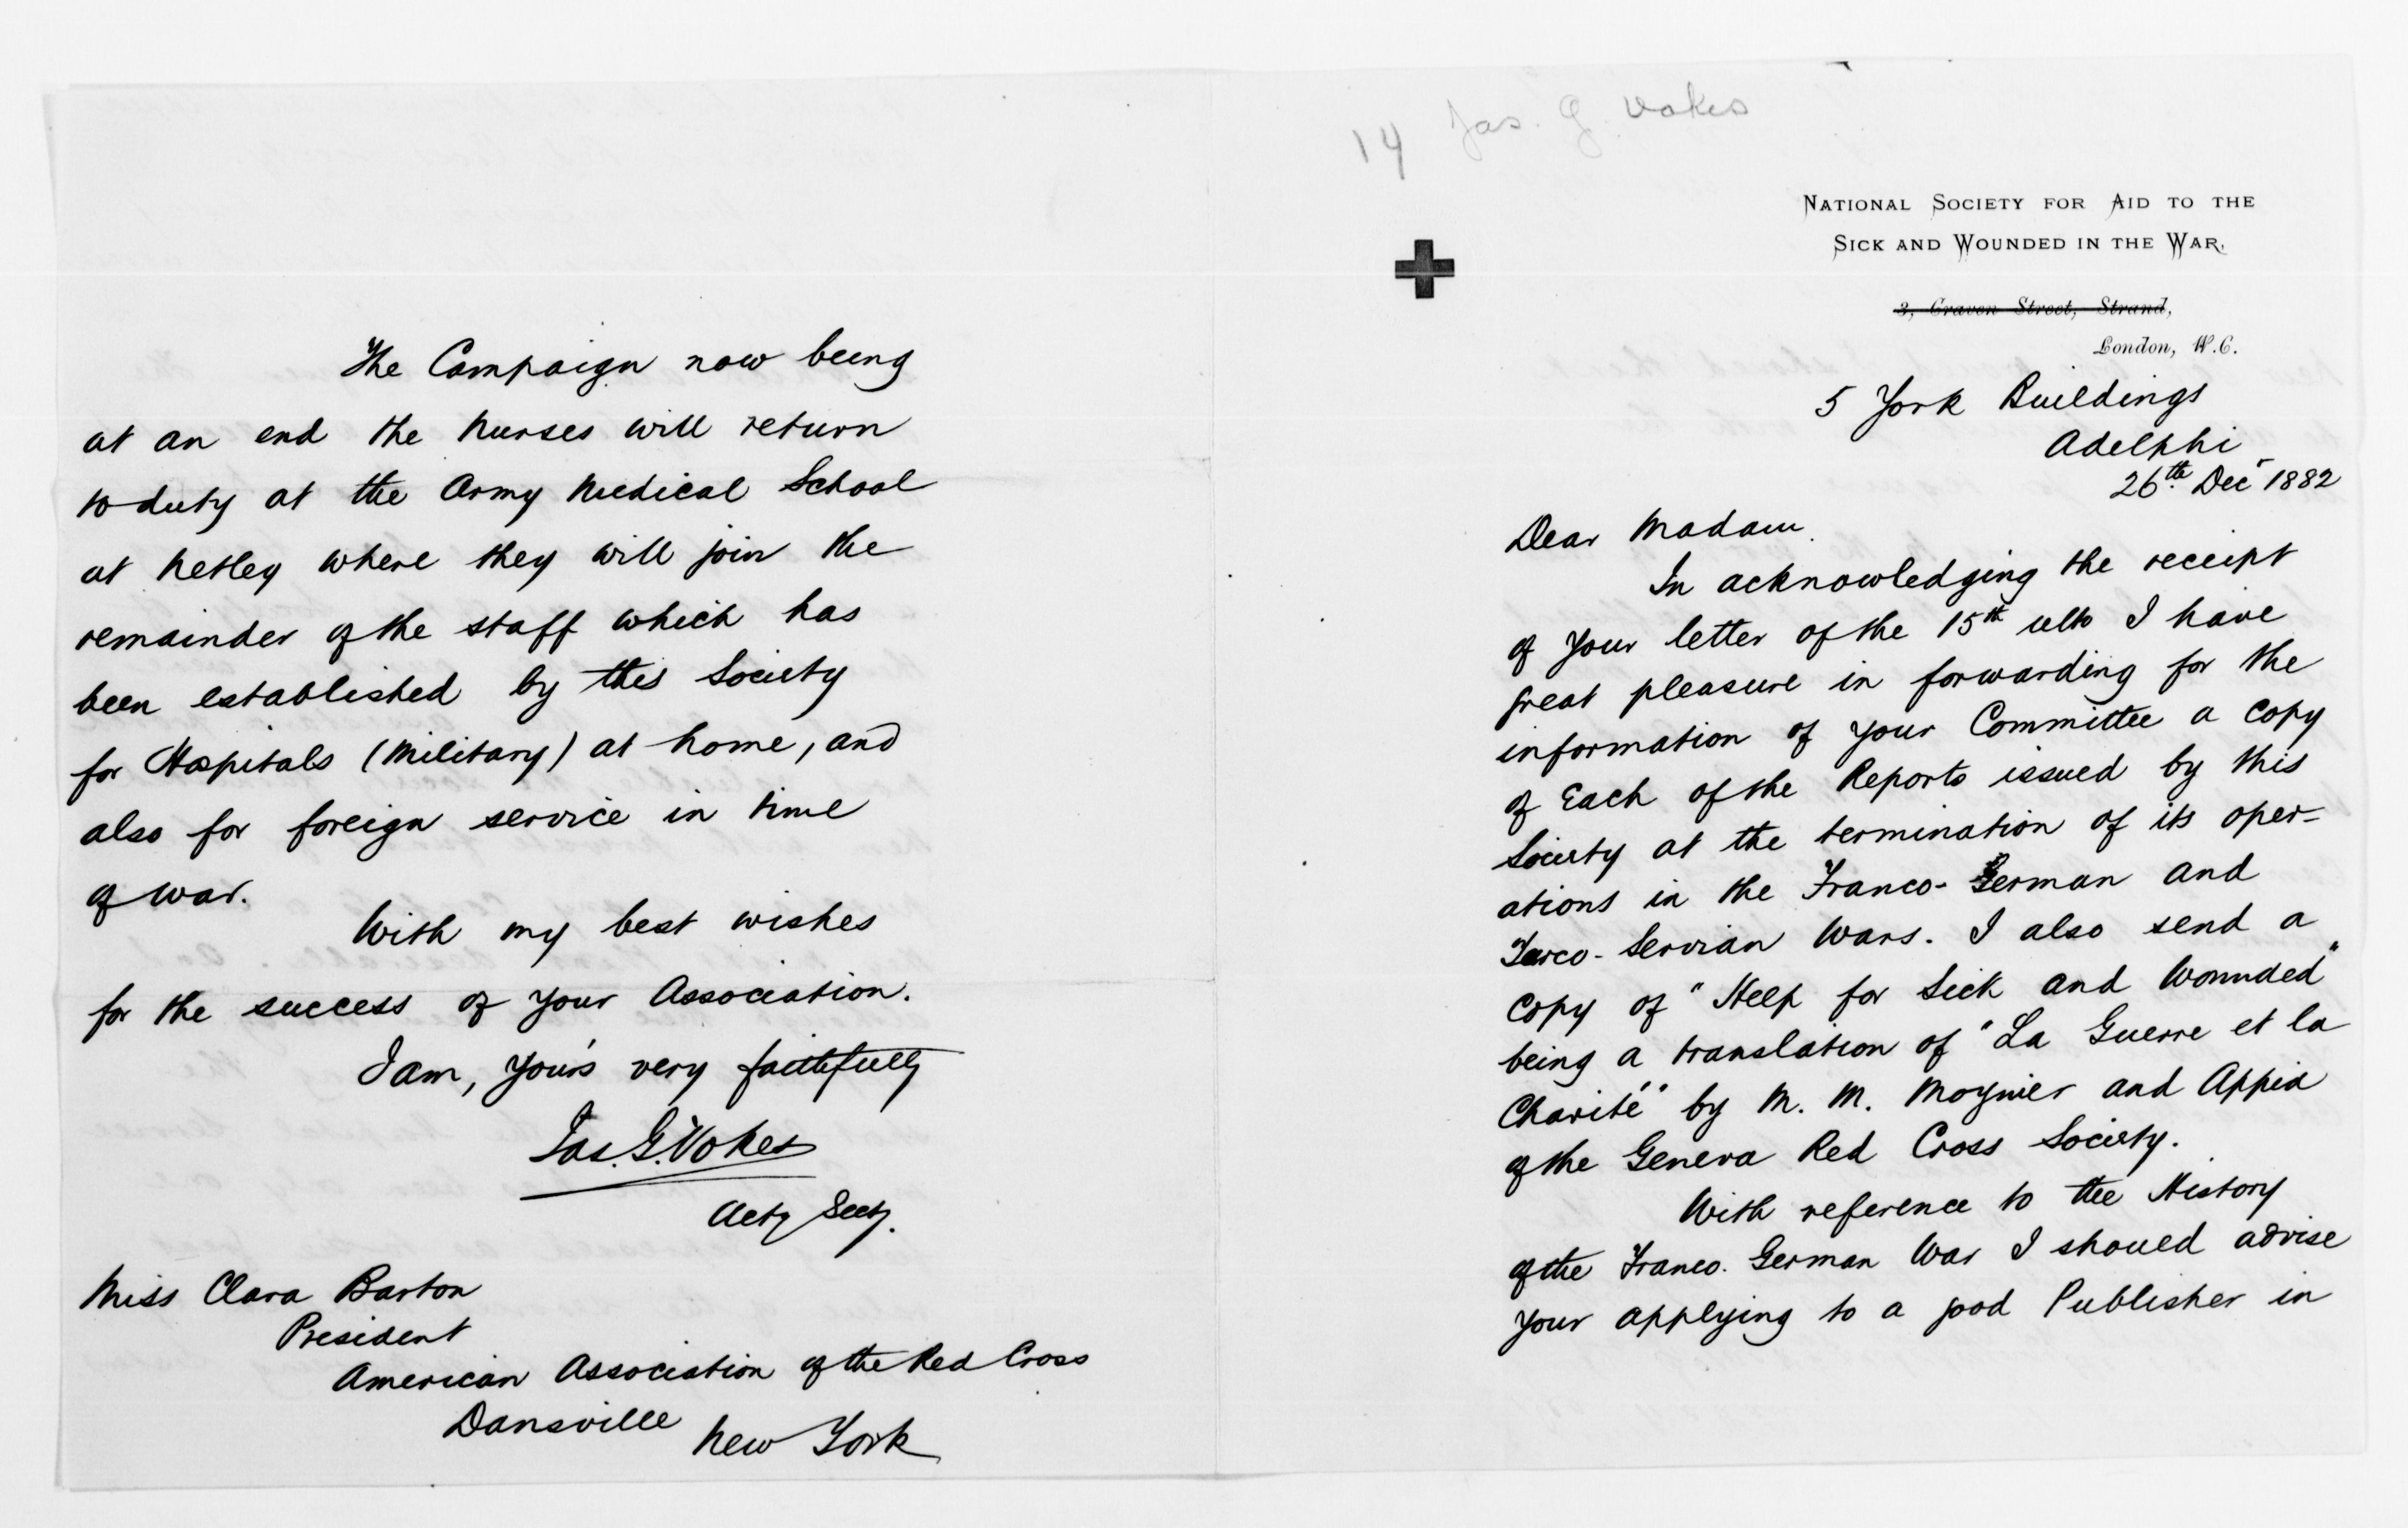 14 Jas. G. Vokes
NATIONAL SOCIETY FOR AID TO THE
SICK AND WOUNDED IN THE WAR,
3, Craven Street, Strand,
London, W.C.
5 York Buildings
Adelphi
26th Decr 1882
Dear Madam.
In acknowledging the receipt
of your letter of the 15th ulto I have
great pleasure in forwarding for the
information of your Committee a copy
of Each of the Reports issued by this
Society at the termination of its oper-
ations in the Franco-German and
Turco-Servian Wars. I also send a
copy of "Help for Sick and Wounded"
being a translation of "La Guerre et la
Charité" by M. M. Moynier and Appia
of the Geneva Red Cross Society.
With reference to the History
of the Franco. German War I should advise
your applying to a good Publisher in
The Campaign now being
at an end the Nurses will return
to duty at the Army Medical School
at Netley where they will join the
remainder of the staff which has
been established by this Society
for Hospitals (Military) at home, and
also for foreign service in time
of war.
With my best wishes
for the success of your Association.
I am, your's very faithfully
Jas. G. Vokes
Actg Secty.
Miss Clara Barton
President
American Association of the Red Cross
Dansville New York